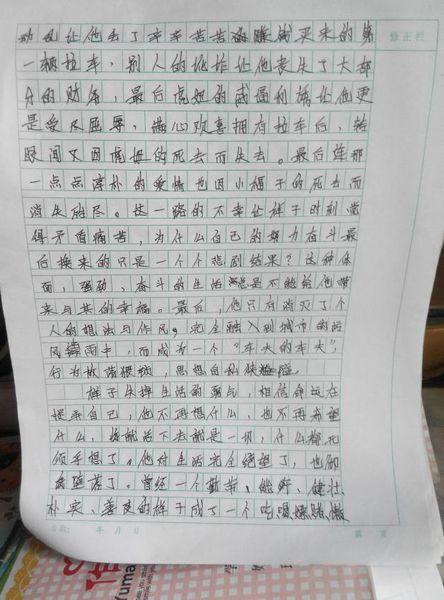 动乱让他丢了辛辛苦苦赚钱买来的第 修正栏
一辆拉车，别人的诈让他丧失了大部
分的财产，最后虎妞的威逼利诱让他更
是受尽屈辱，满心欢喜拥有拉车后，转
眼间又因虎妞的死去而失去。最后连那
一点点淳朴的爱情也因小福子的死去而
消失殆尽。这一路的不幸让祥子时刻觉
得矛盾痛苦，为什么自己的努力奋斗最
后换来的只是一个个悲剧结果？这种体
面，强劲，奋斗的生活总是不能给他带
来与其的幸福。最后，他只有消灭了个
人的想法与作风，完全融入到城市的
风雨中，而成为一个“车夫的车夫”，
行为堕落猥琐，思想自私
祥子失掉生活的勇气，相信命运在
捉弄自己，他不再想什么，也不再希望
什么，将就活下去就是一切，什么都无
须乎想了。他对生活完全绝望了，也彻
底堕落了。曾经一个勤劳、能、健壮、
朴实、善良的祥子成了一个吃喝嫖赌、懒
年 月 日 第 页
(Yuma